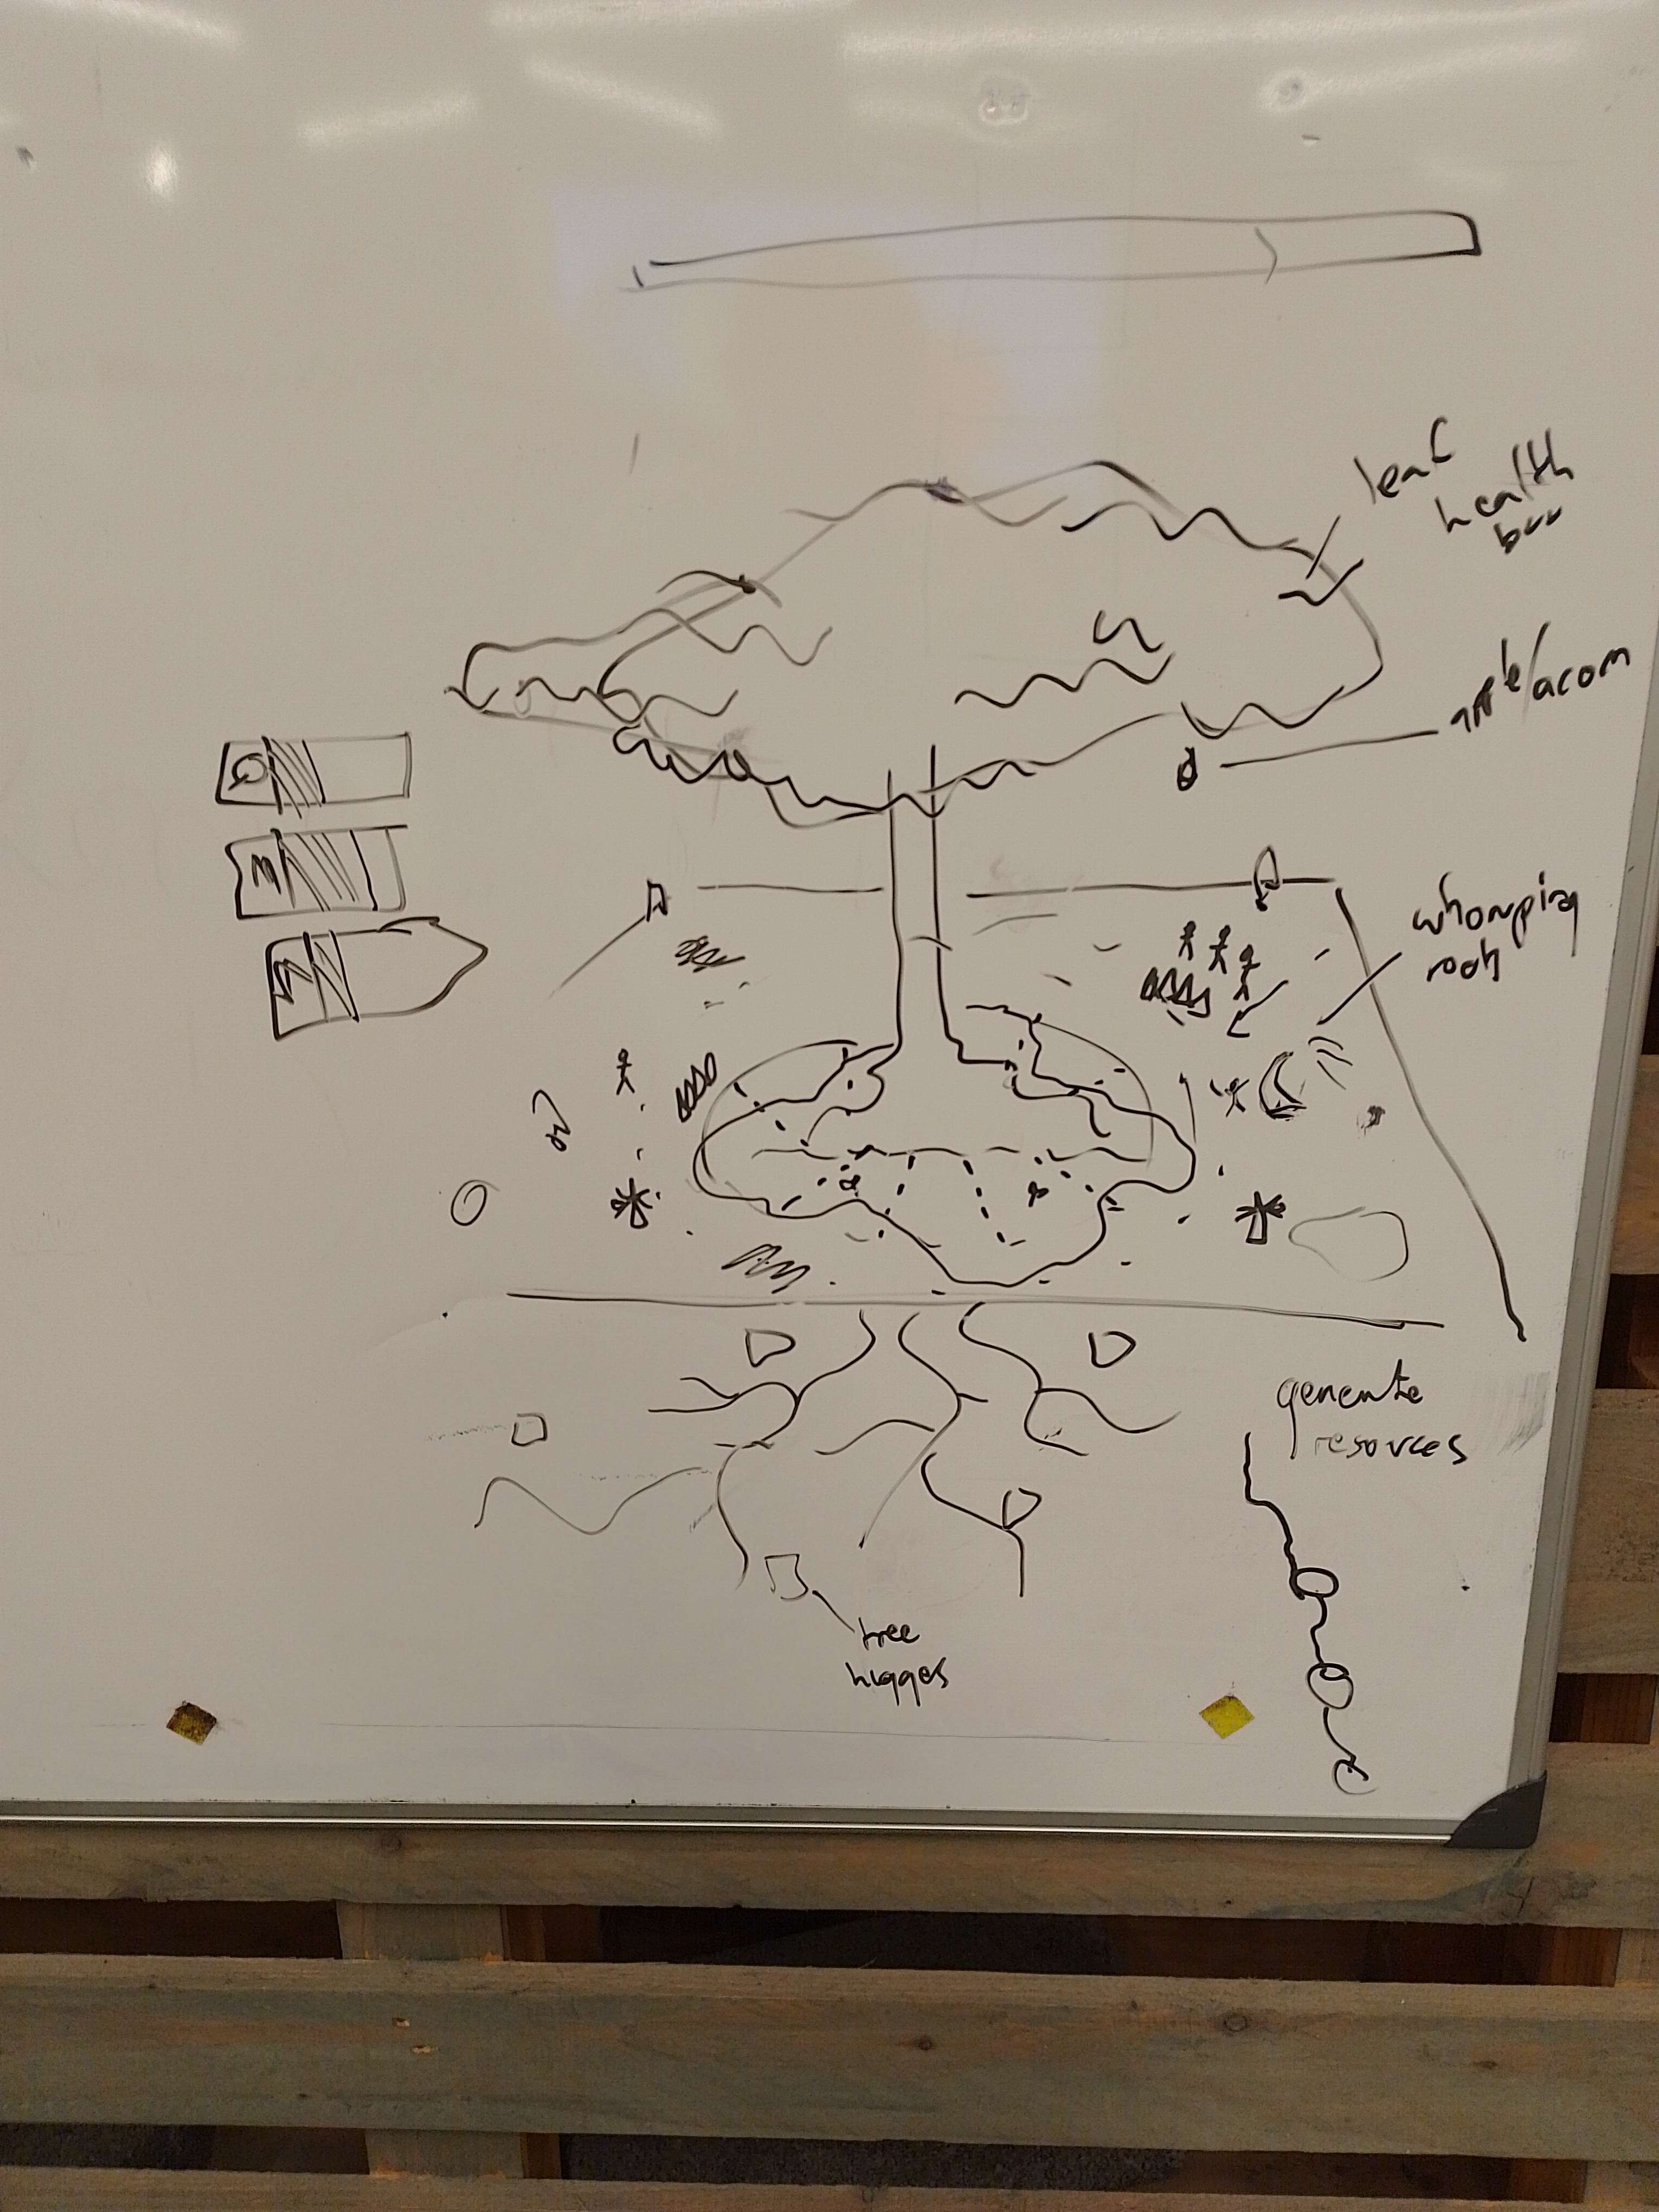 leaf
health
bar
apple/acorn
whomping
root
generate
resorces
tree
hugges